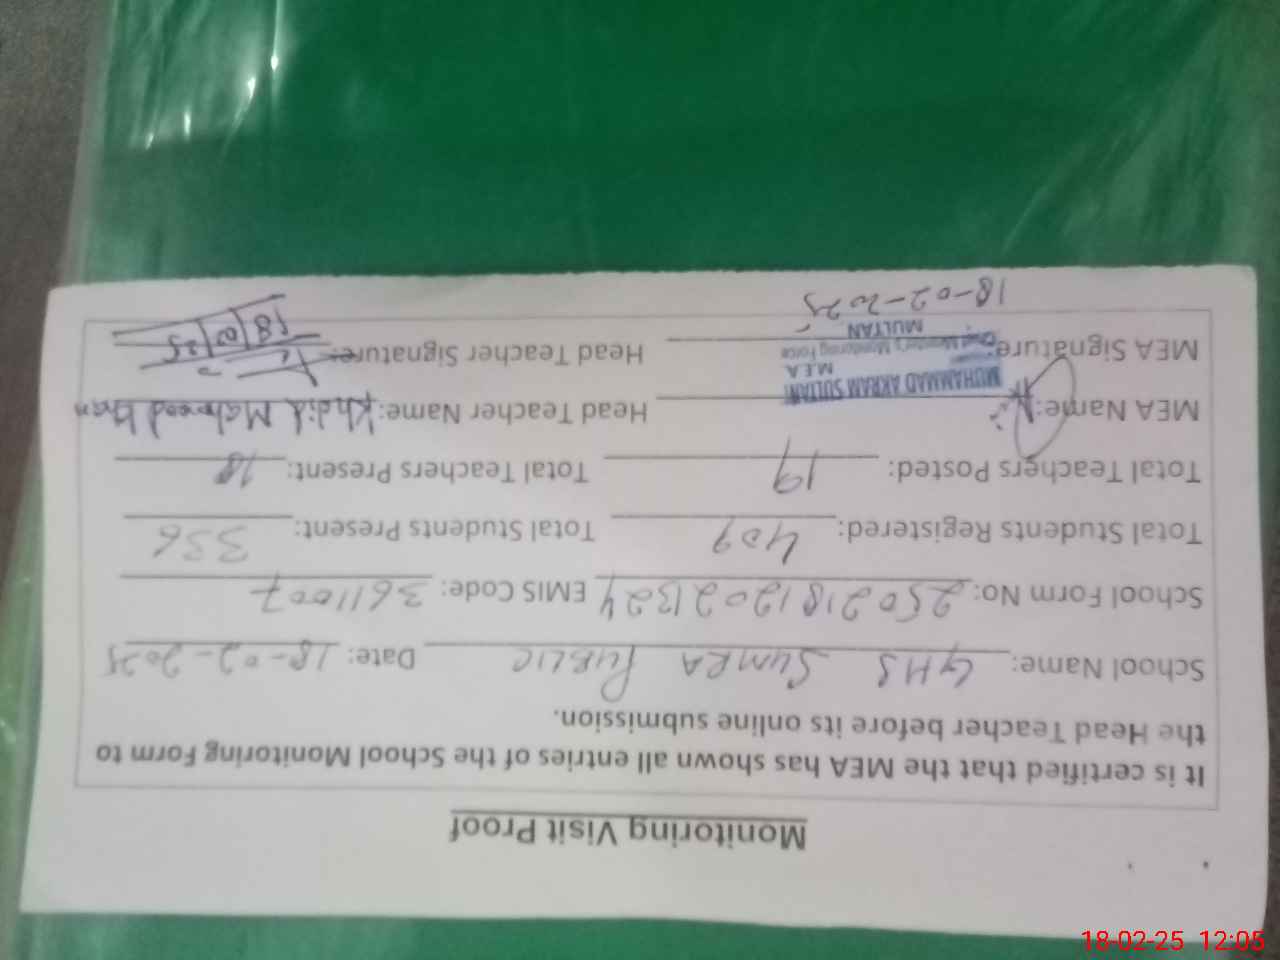 Monitoring Visit Proof
It is certified that the MEA has shown all entries of the School Monitoring Form to
the Head Teacher before its online submission.
School Name: GHS SUMRA PUBLIC Date: 18-02-2025
School Form No: 25021812021324 EMIS Code: 3611007
Total Students Registered: 409 Total Students Present: 336
Total Teachers Posted: 19 Total Teachers Present: 18
MEA Name: Head Teacher Name: Khalid Mahmood Khan
MUHAMMAD AKRAM SULTANI
M.E.A
MEA Signature: Head Teacher Signature:
Chief Minister's Monitoring Force
MULTAN
18-02-2025
18-02-25 12:05